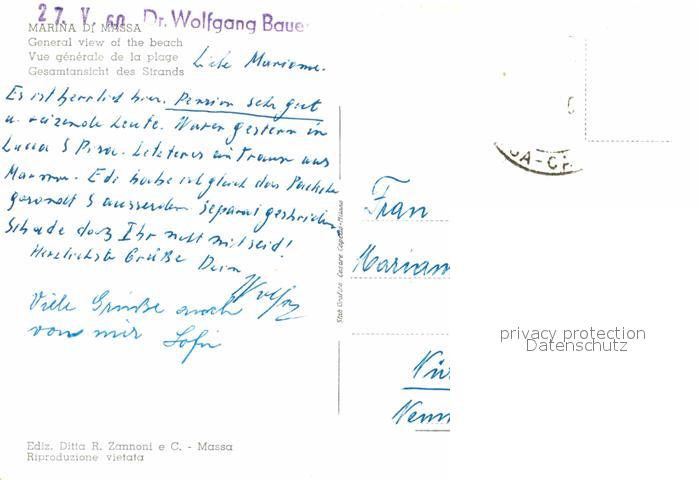 27. V. 60 Dr. Wolfgang Baue
MARINA DI MASSA
General view of the beach
Vue générale de la plage
Gesamtansicht des Strands
Liebe Marianne.
Es ist herrlich hier. Pension sehr gut
u. reizende Leute. Waren gestern in
Lucca & Pisa. Letzteres ein Traum aus
Marmor. Edi habe ich gleich das Packerl
gesandt & ausserdem separat geschrieben
Schade daß Ihr nicht mit seid!
Herzlichste Grüße Dein
Wolfg
Viele Grüße auch
von mir Sofie
Frau
Mariann
Nür
Stab. Grafico Cesare Capello-Milano
privacy protection
Datenschutz
Ediz. Ditta R. Zannoni e C. - Massa
Riproduzione vietata